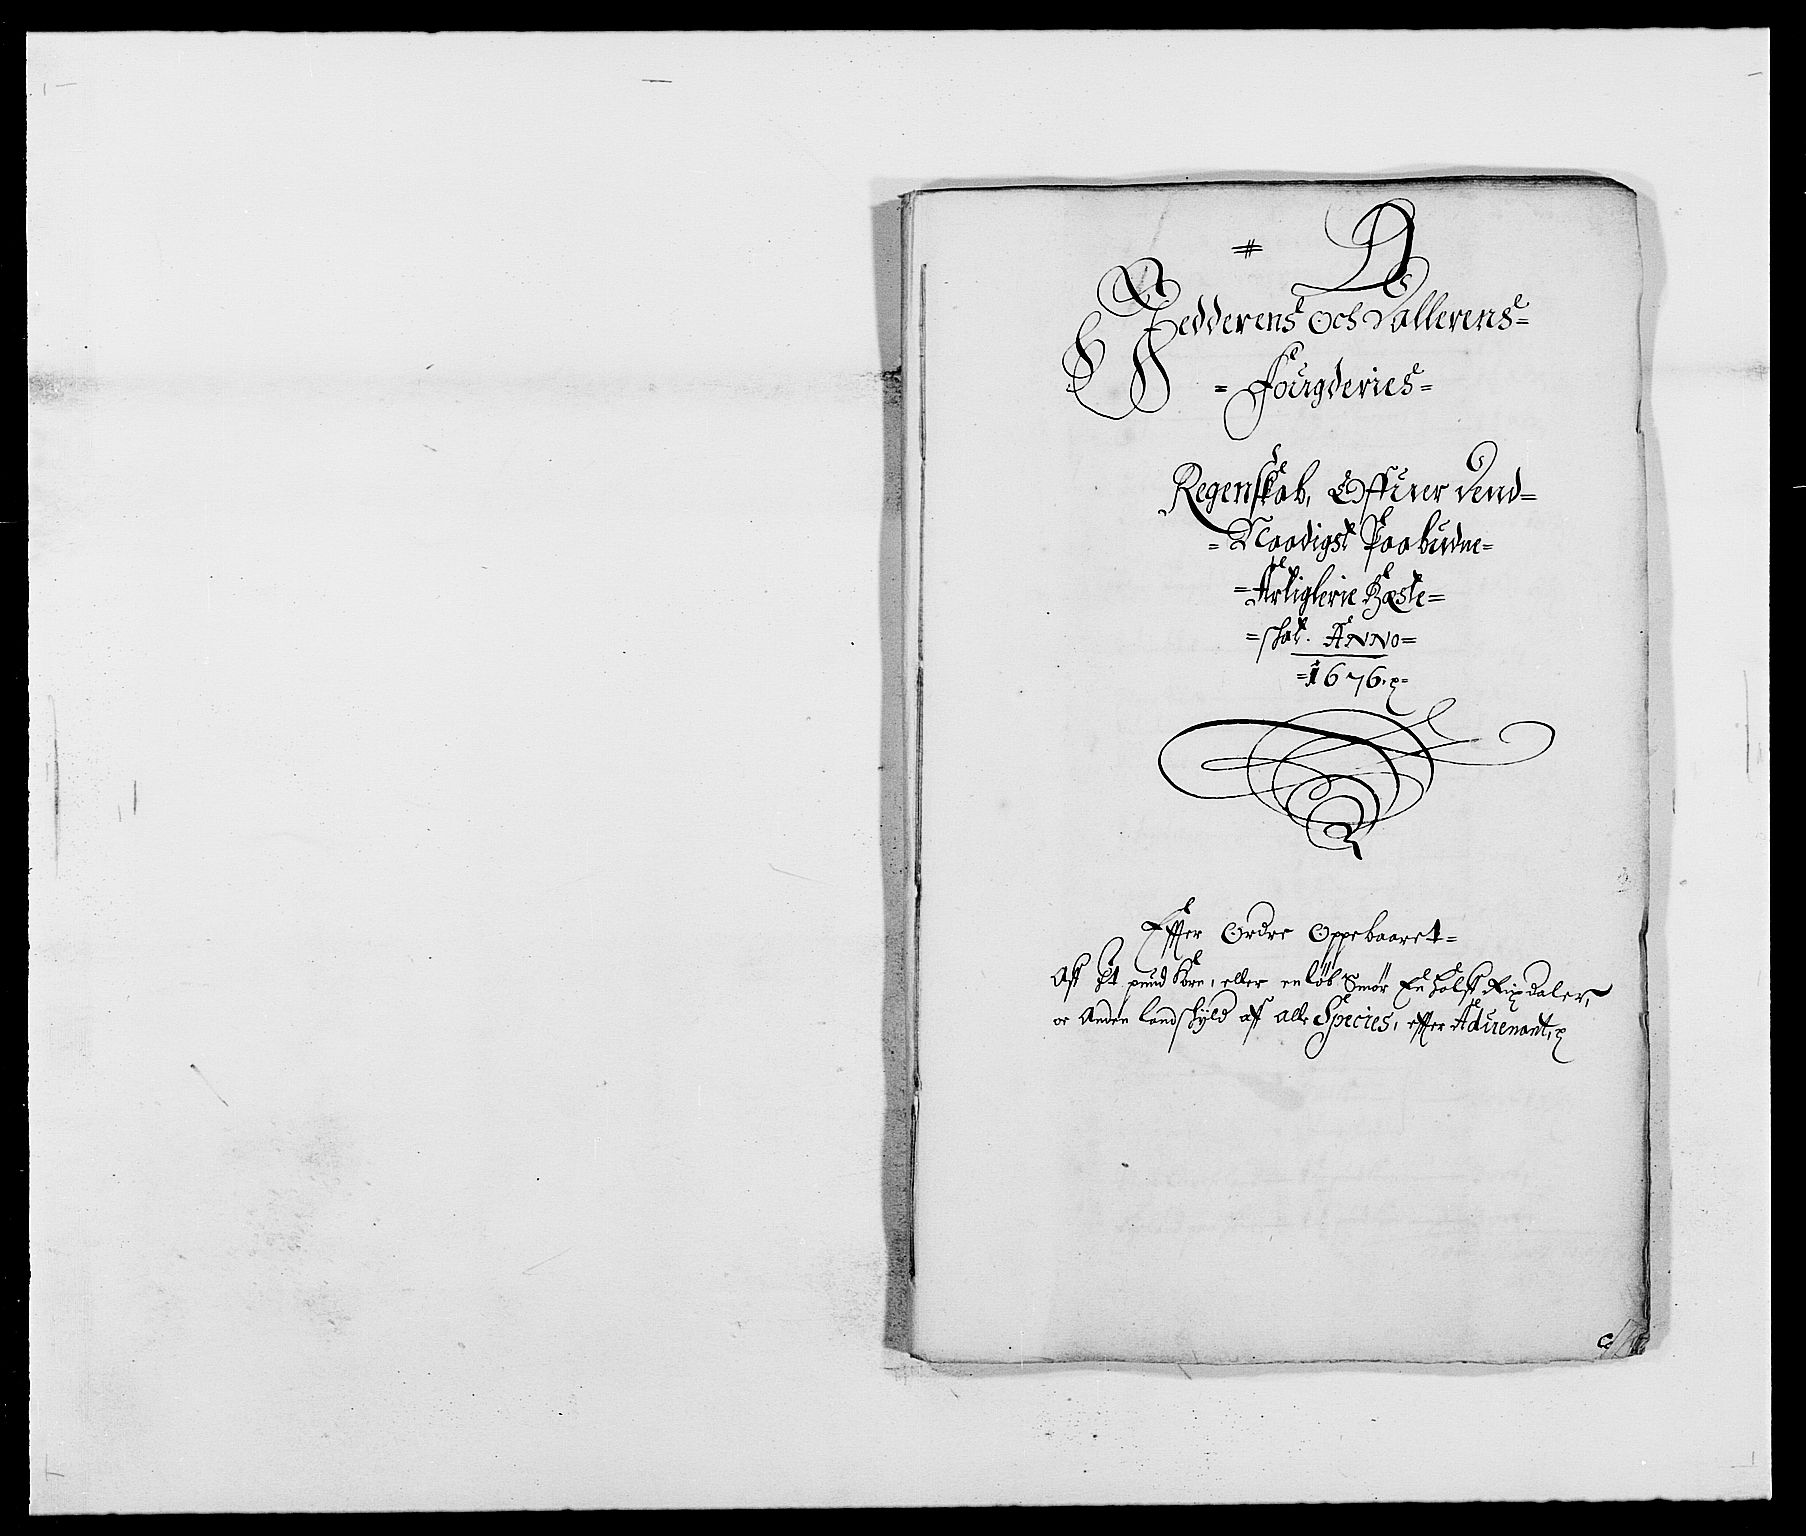 Jedderens och Dallerens=
= Fougderies=
Regenskab, Offuer dend=
= Naadigst Paabudne=
=Artiglerie Hæste=
=skat. ANNO=
=1676.
Effter Ordre Oppebaaret=
Aff Et pund Korn, eller en løb Smør En halff Rixdaler,
oc Anden landskyld aff alle Species, effter Aduenant,